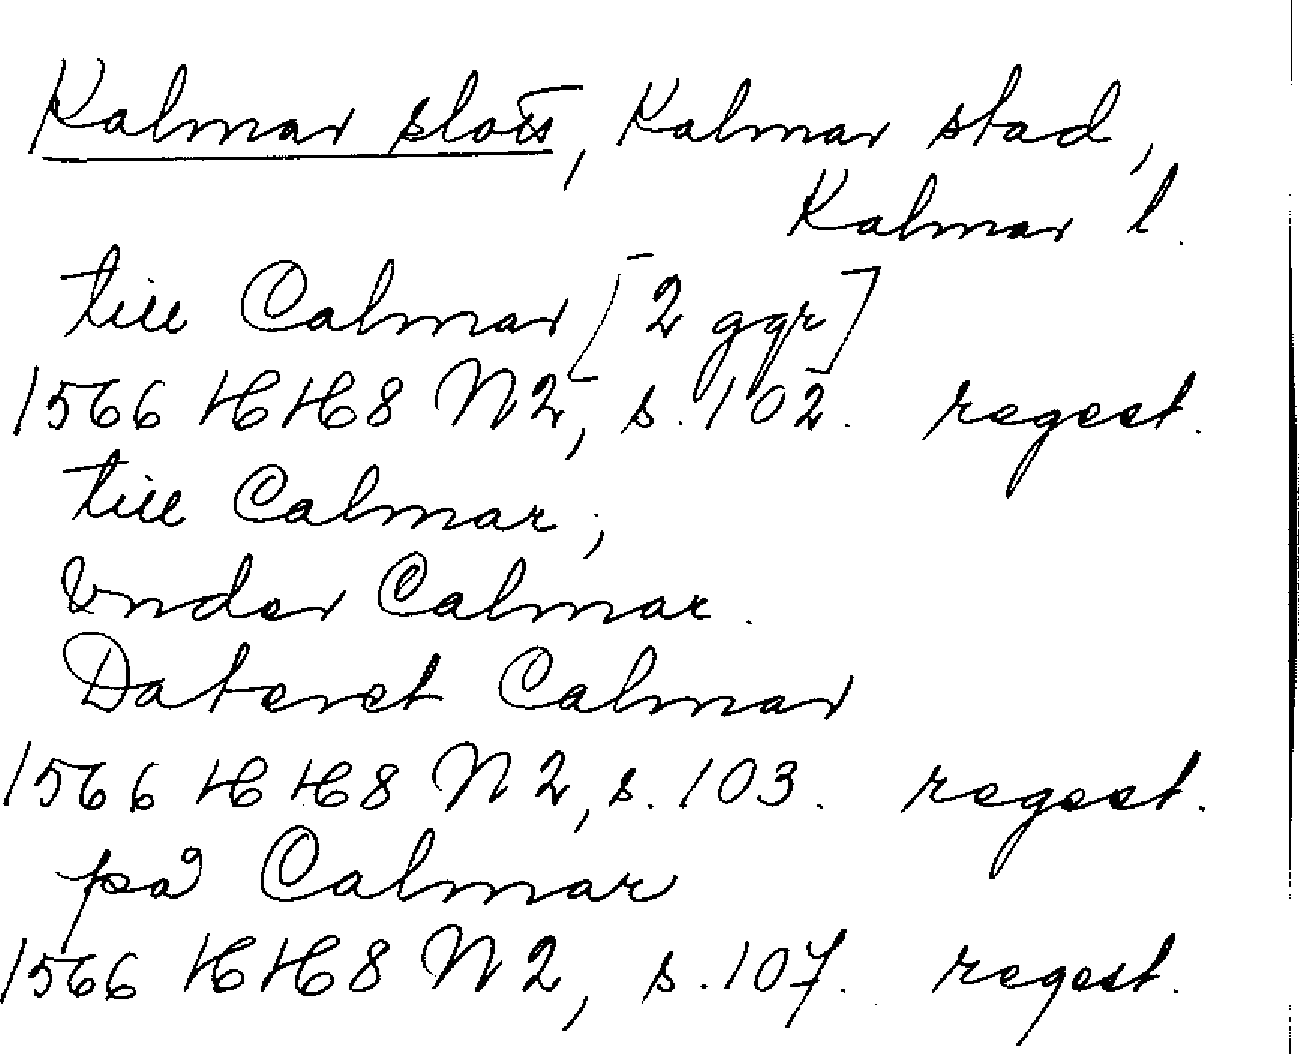 Kalmar slott, Kalmar stad,
Kalmar l.
till Calmar [2 ggr]
1566 HH8 N2, s. 102. regest.
till Calmar;
Vnder Calmar.
Dateret Calmar
1566 HH8 N2, s. 103. regest.
på Calmar
1566 HH8 N2, s. 107. regest.